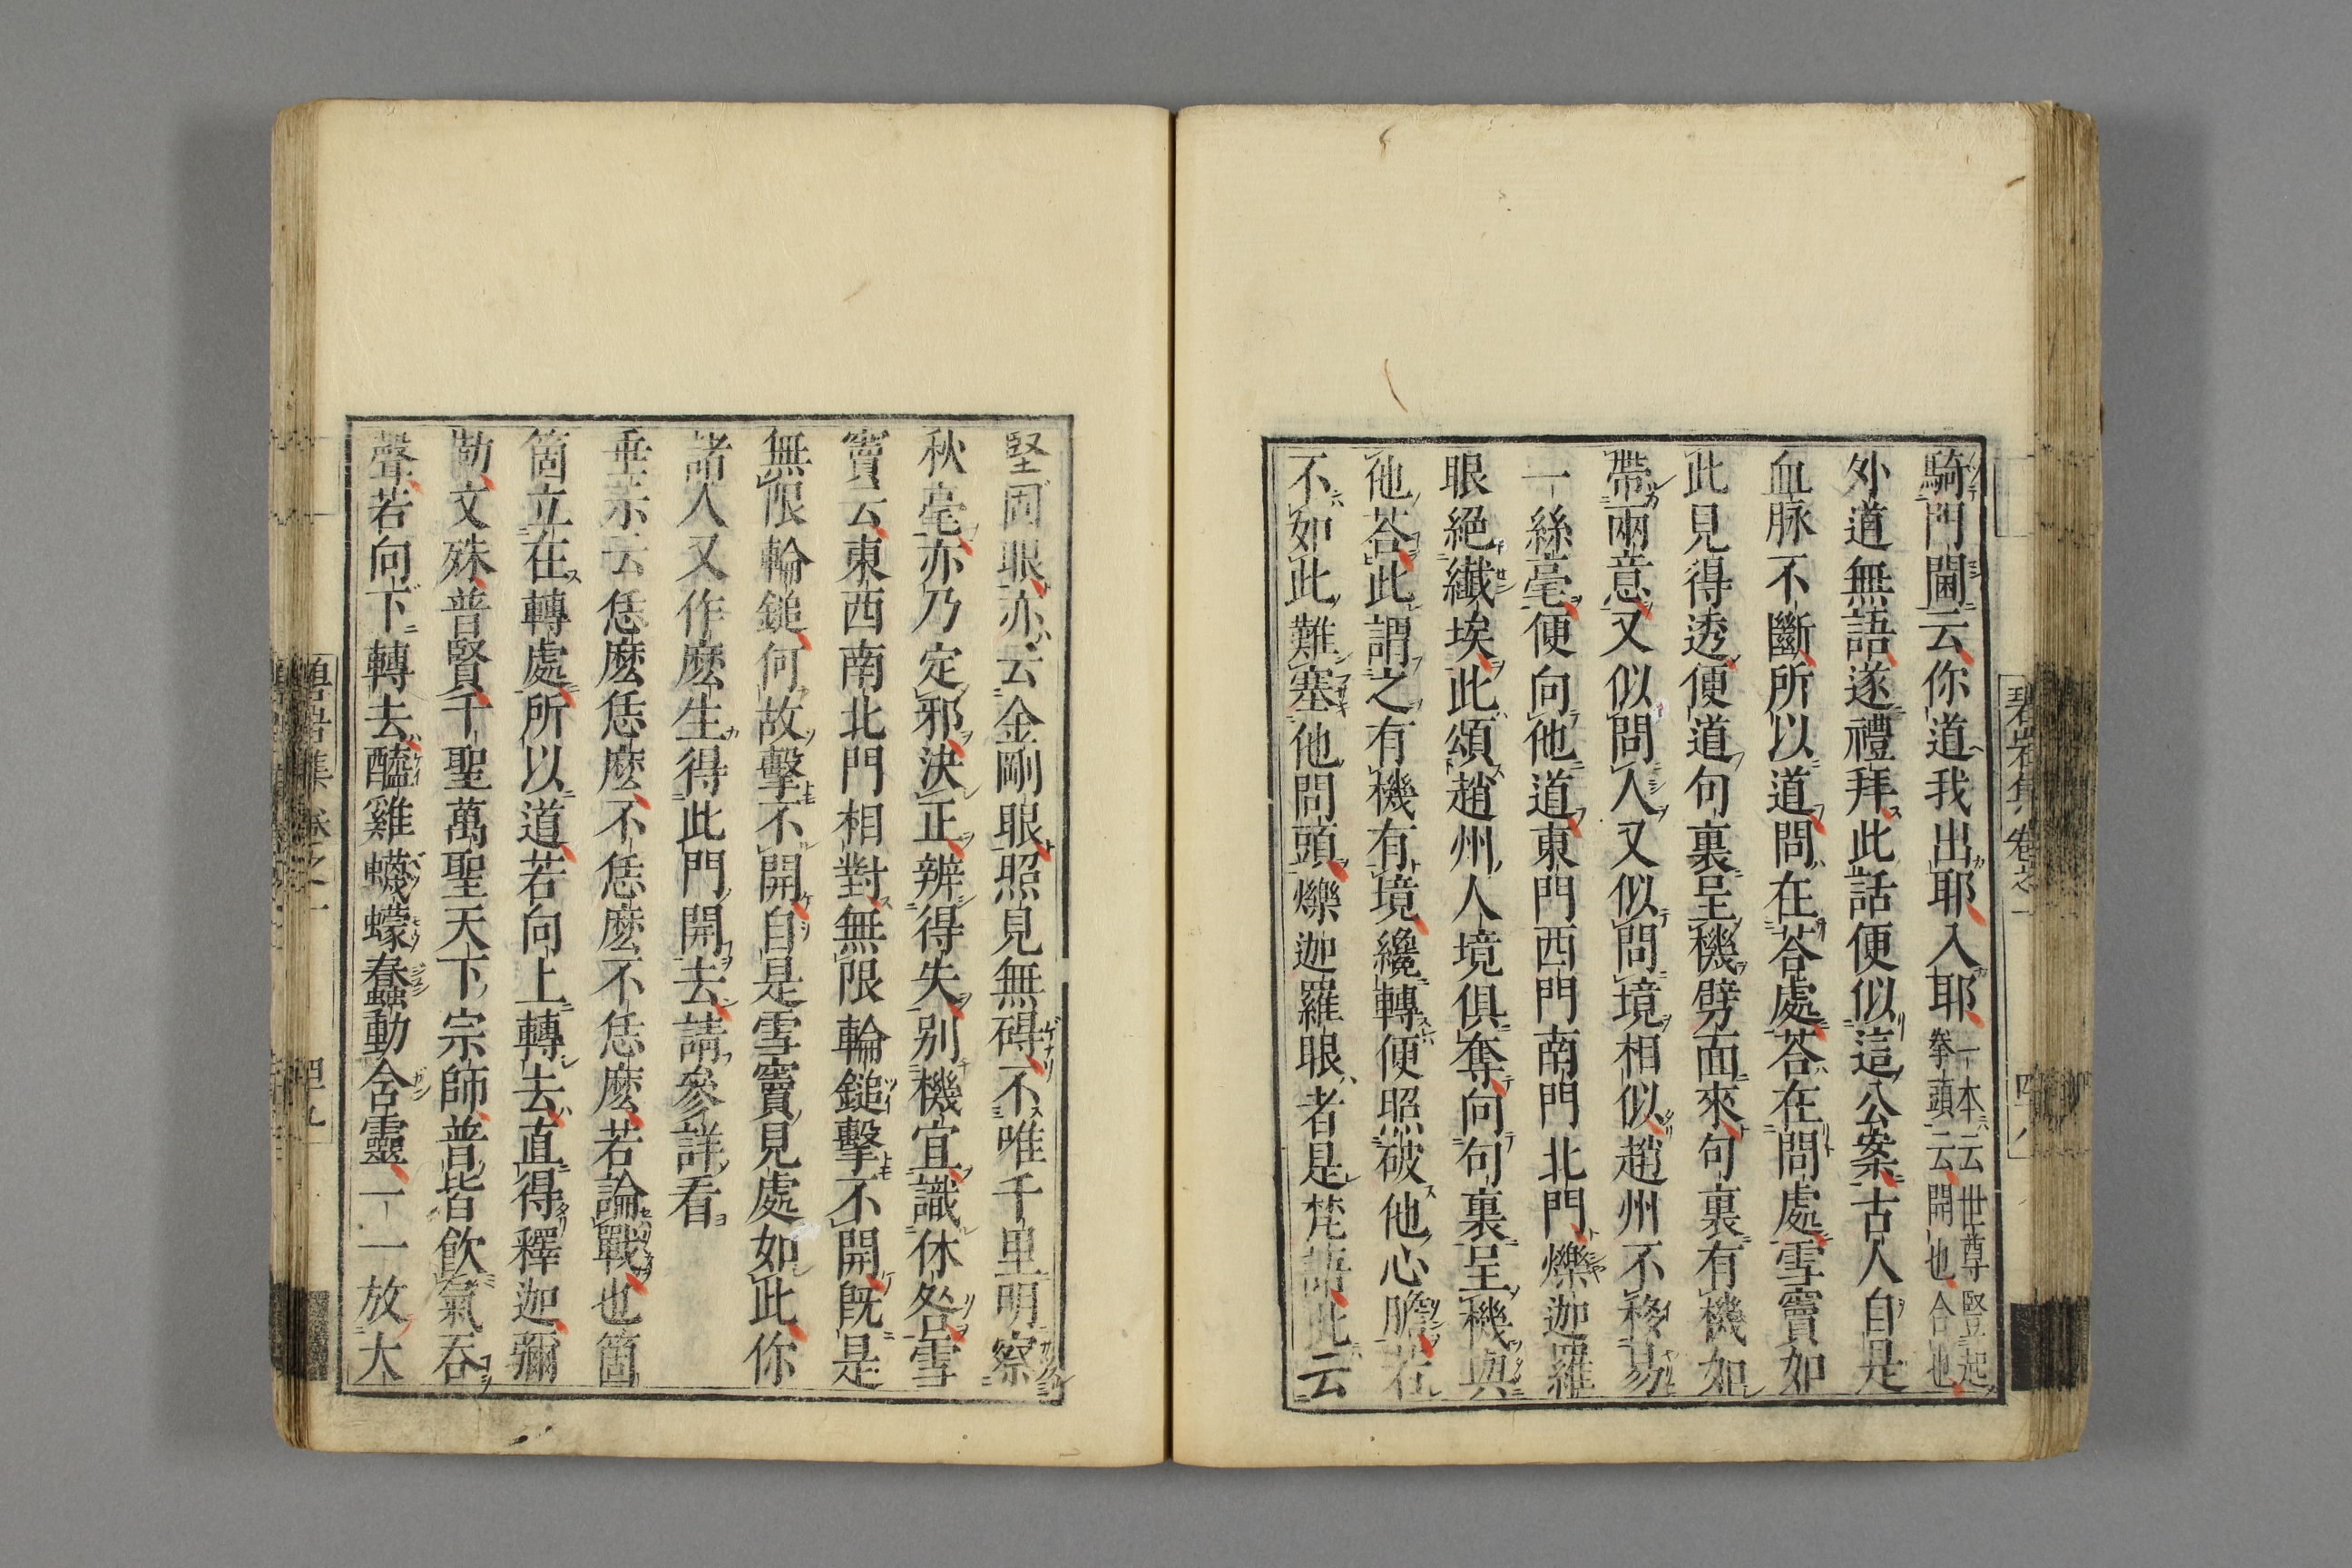 騎門閫云你道我出耶入耶一本云世尊竪起拳頭云開也合也
外道無語遂禮拜此話便似這公案古人自是
血脉不斷所以道問在荅處荅在問處雪竇如
此見得透便道句裏呈機劈面來句裏有機如
帶兩意又似問人又似問境相似趙州不移易
一絲毫便向他道東門西門南門北門爍迦羅
眼絕纖埃此頌趙州人境俱奪向句裏呈機與
他荅此謂之有機有境纔轉便照破他心膽若
不如此難塞他問頭爍迦羅眼者是梵語此云
碧岩集卷之一
四八
堅固眼亦云金剛眼照見無碍不唯千里明察
秋毫亦乃定邪決正辨得失別機宜識休咎雪
竇云東西南北門相對無限輪鎚擊不開既是
無限輪鎚何故擊不開自是雪竇見處如此你
諸人又作麽生得此門開去請參詳看
垂示云恁麽恁麽不恁麽不恁麽若論戰也箇
箇立在轉處所以道若向上轉去直得釋迦彌
勒文殊普賢千聖萬聖天下宗師普皆飲氣吞
聲若向下轉去醯雞蠛蠓蠢動含靈一一放大
集卷之一
四九